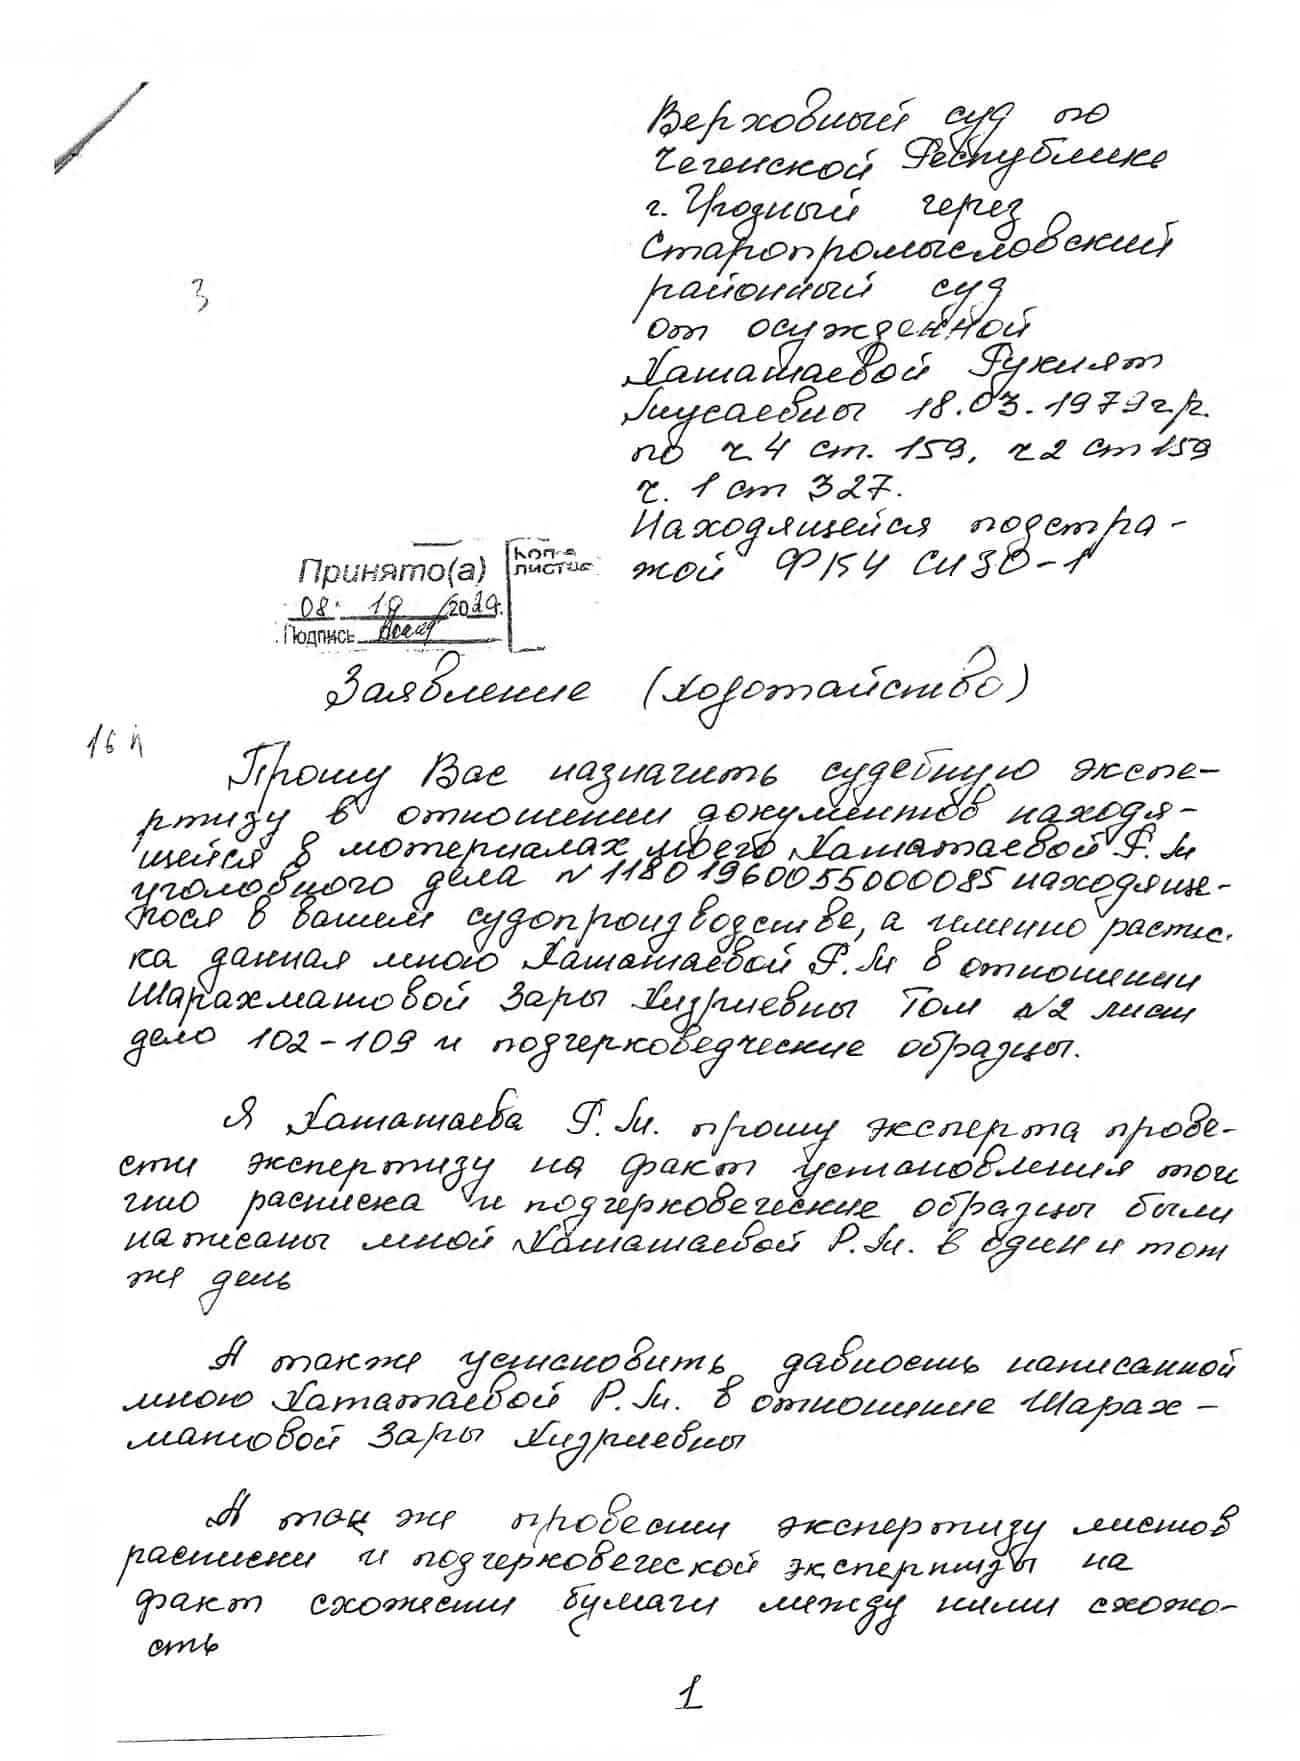 Верховный суд по
Чеченской Республике
г. Грозный через
Старопромысловский
районный суд
3
от осужденной
Хаташаевой Рукият
Мусаевны 18.03.1979 г.р.
по ч. 4 ст. 159, ч 2 ст 159
ч. 1 ст 327.
Находящейся подстра-
жой ФКУ СИЗО-1
Принято(а)
листов
08. 10 2020г.
Подпись
Заявление (ходотайство)
16 л
Прошу Вас назначить судебную экспе-
ртизу в отношении документов находя-
щейся в мотериалах моего Хаташаевой Р. М
уголовного дела № 11801960055000085 находяще-
гося в вашем судопроизводстве, а именно распис.
ка данная мною Хаташаевой Р. М в отношении
Шарахматовой Зары Хизриевны Том №2 лист
дело 102-109 и подчерковедческие образцы.
Я Хаташаева Р. М. прошу эксперта прове-
сти экспертизу на факт установления того
что расписка и подчерковеческие образцы были
написаны мной Хаташаевой Р. М. в один и тот
же день
А также установить давность написанной
мною Хаташаевой Р. М. в отношение Шарах-
матовой Зары Хизриевны
А так же провести экспертизу листов
расписки и подчерковеческой экспертизы на
факт схожести бумаги между ними схожо-
сть
1